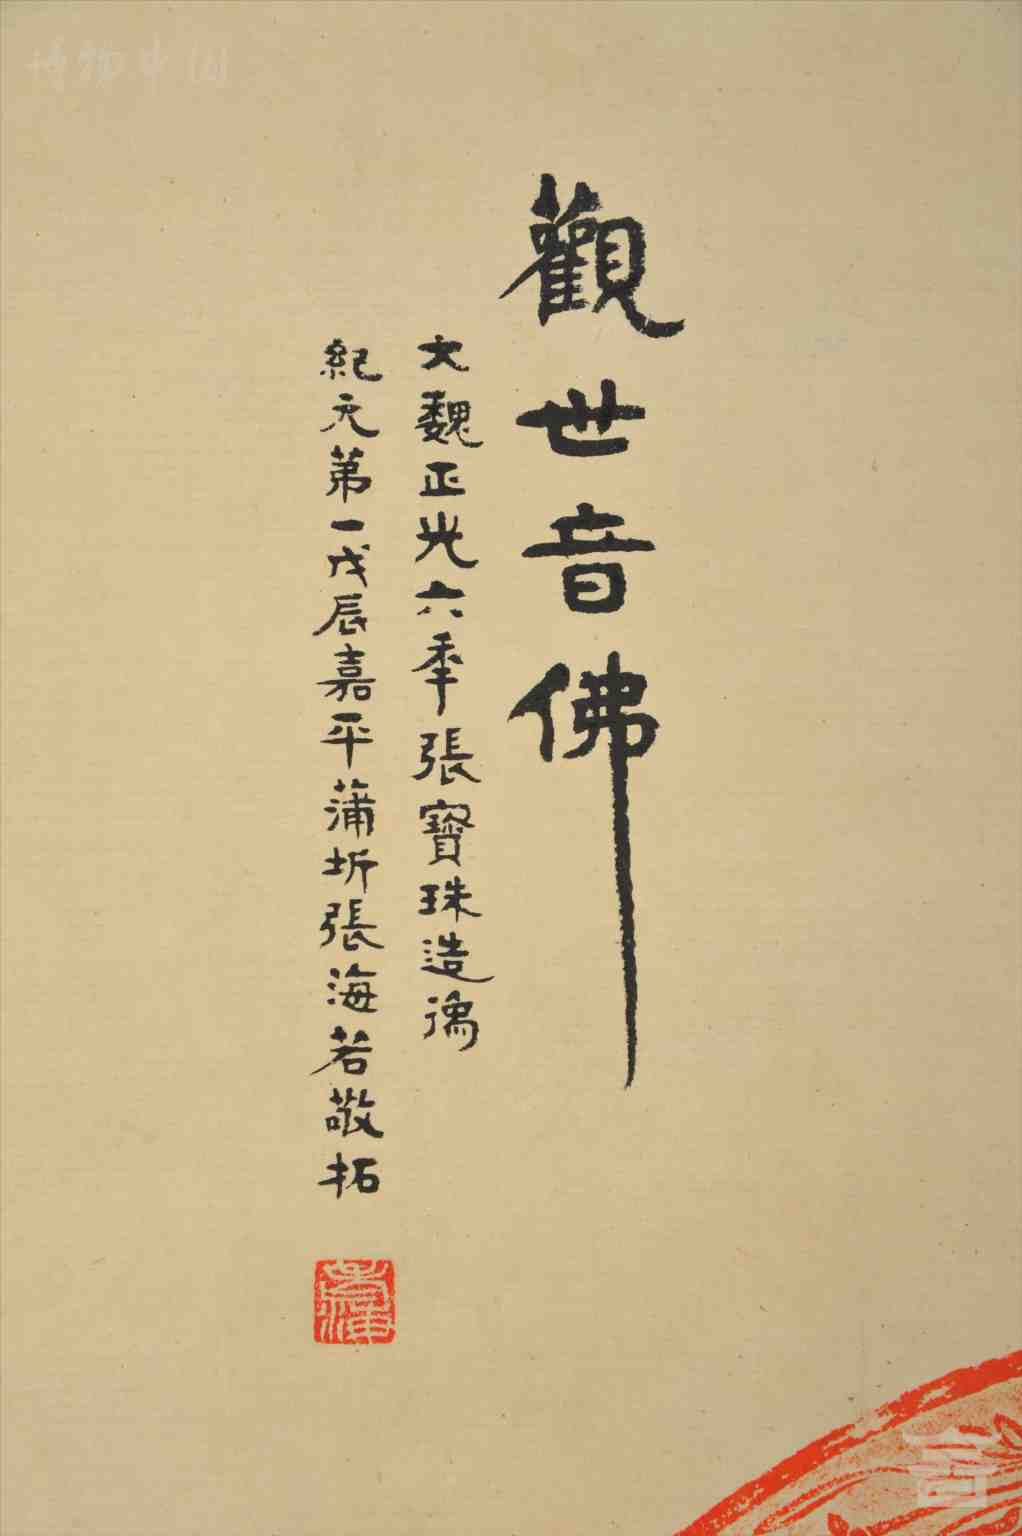 觀世音佛
大魏正光六秊張寶珠造像
紀元第一戊辰嘉平蒲圻張海若敬拓
博物中国